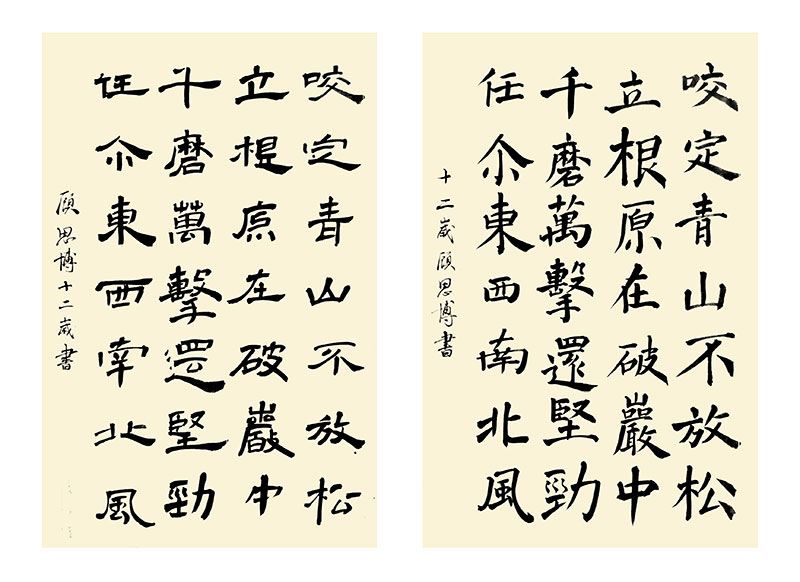 咬定青山不放松
立根原在破巖中
千磨萬擊還堅勁
任尒東西南北風
十二歲顾思博書
咬定青山不放松
立根原在破巖中
千磨萬擊還堅勁
任尒東西南北風
顾思博十二歲書